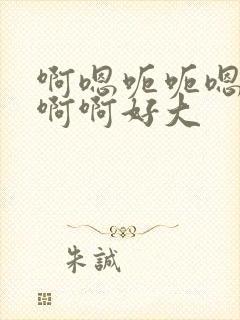 啊嗯呃呃嗯
啊啊好大
朱誠